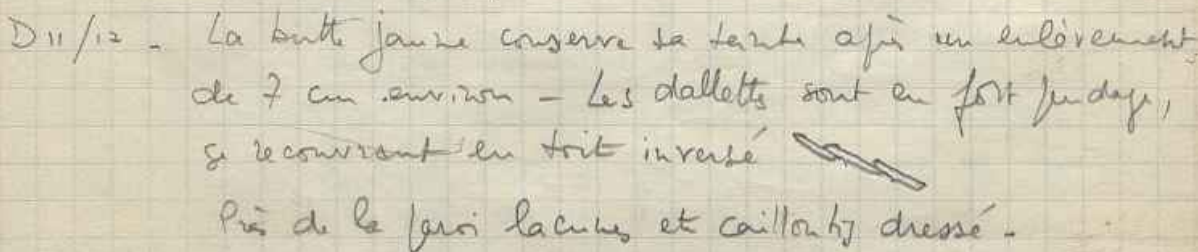 D 11/12 - La butte jaune conserve sa teinte après un enlèvement
de 7 cm environ - Les dallettes sont en fort pendage,
se recouvrant en toit inversé
Près de la paroi lacunes et cailloutis dressé -